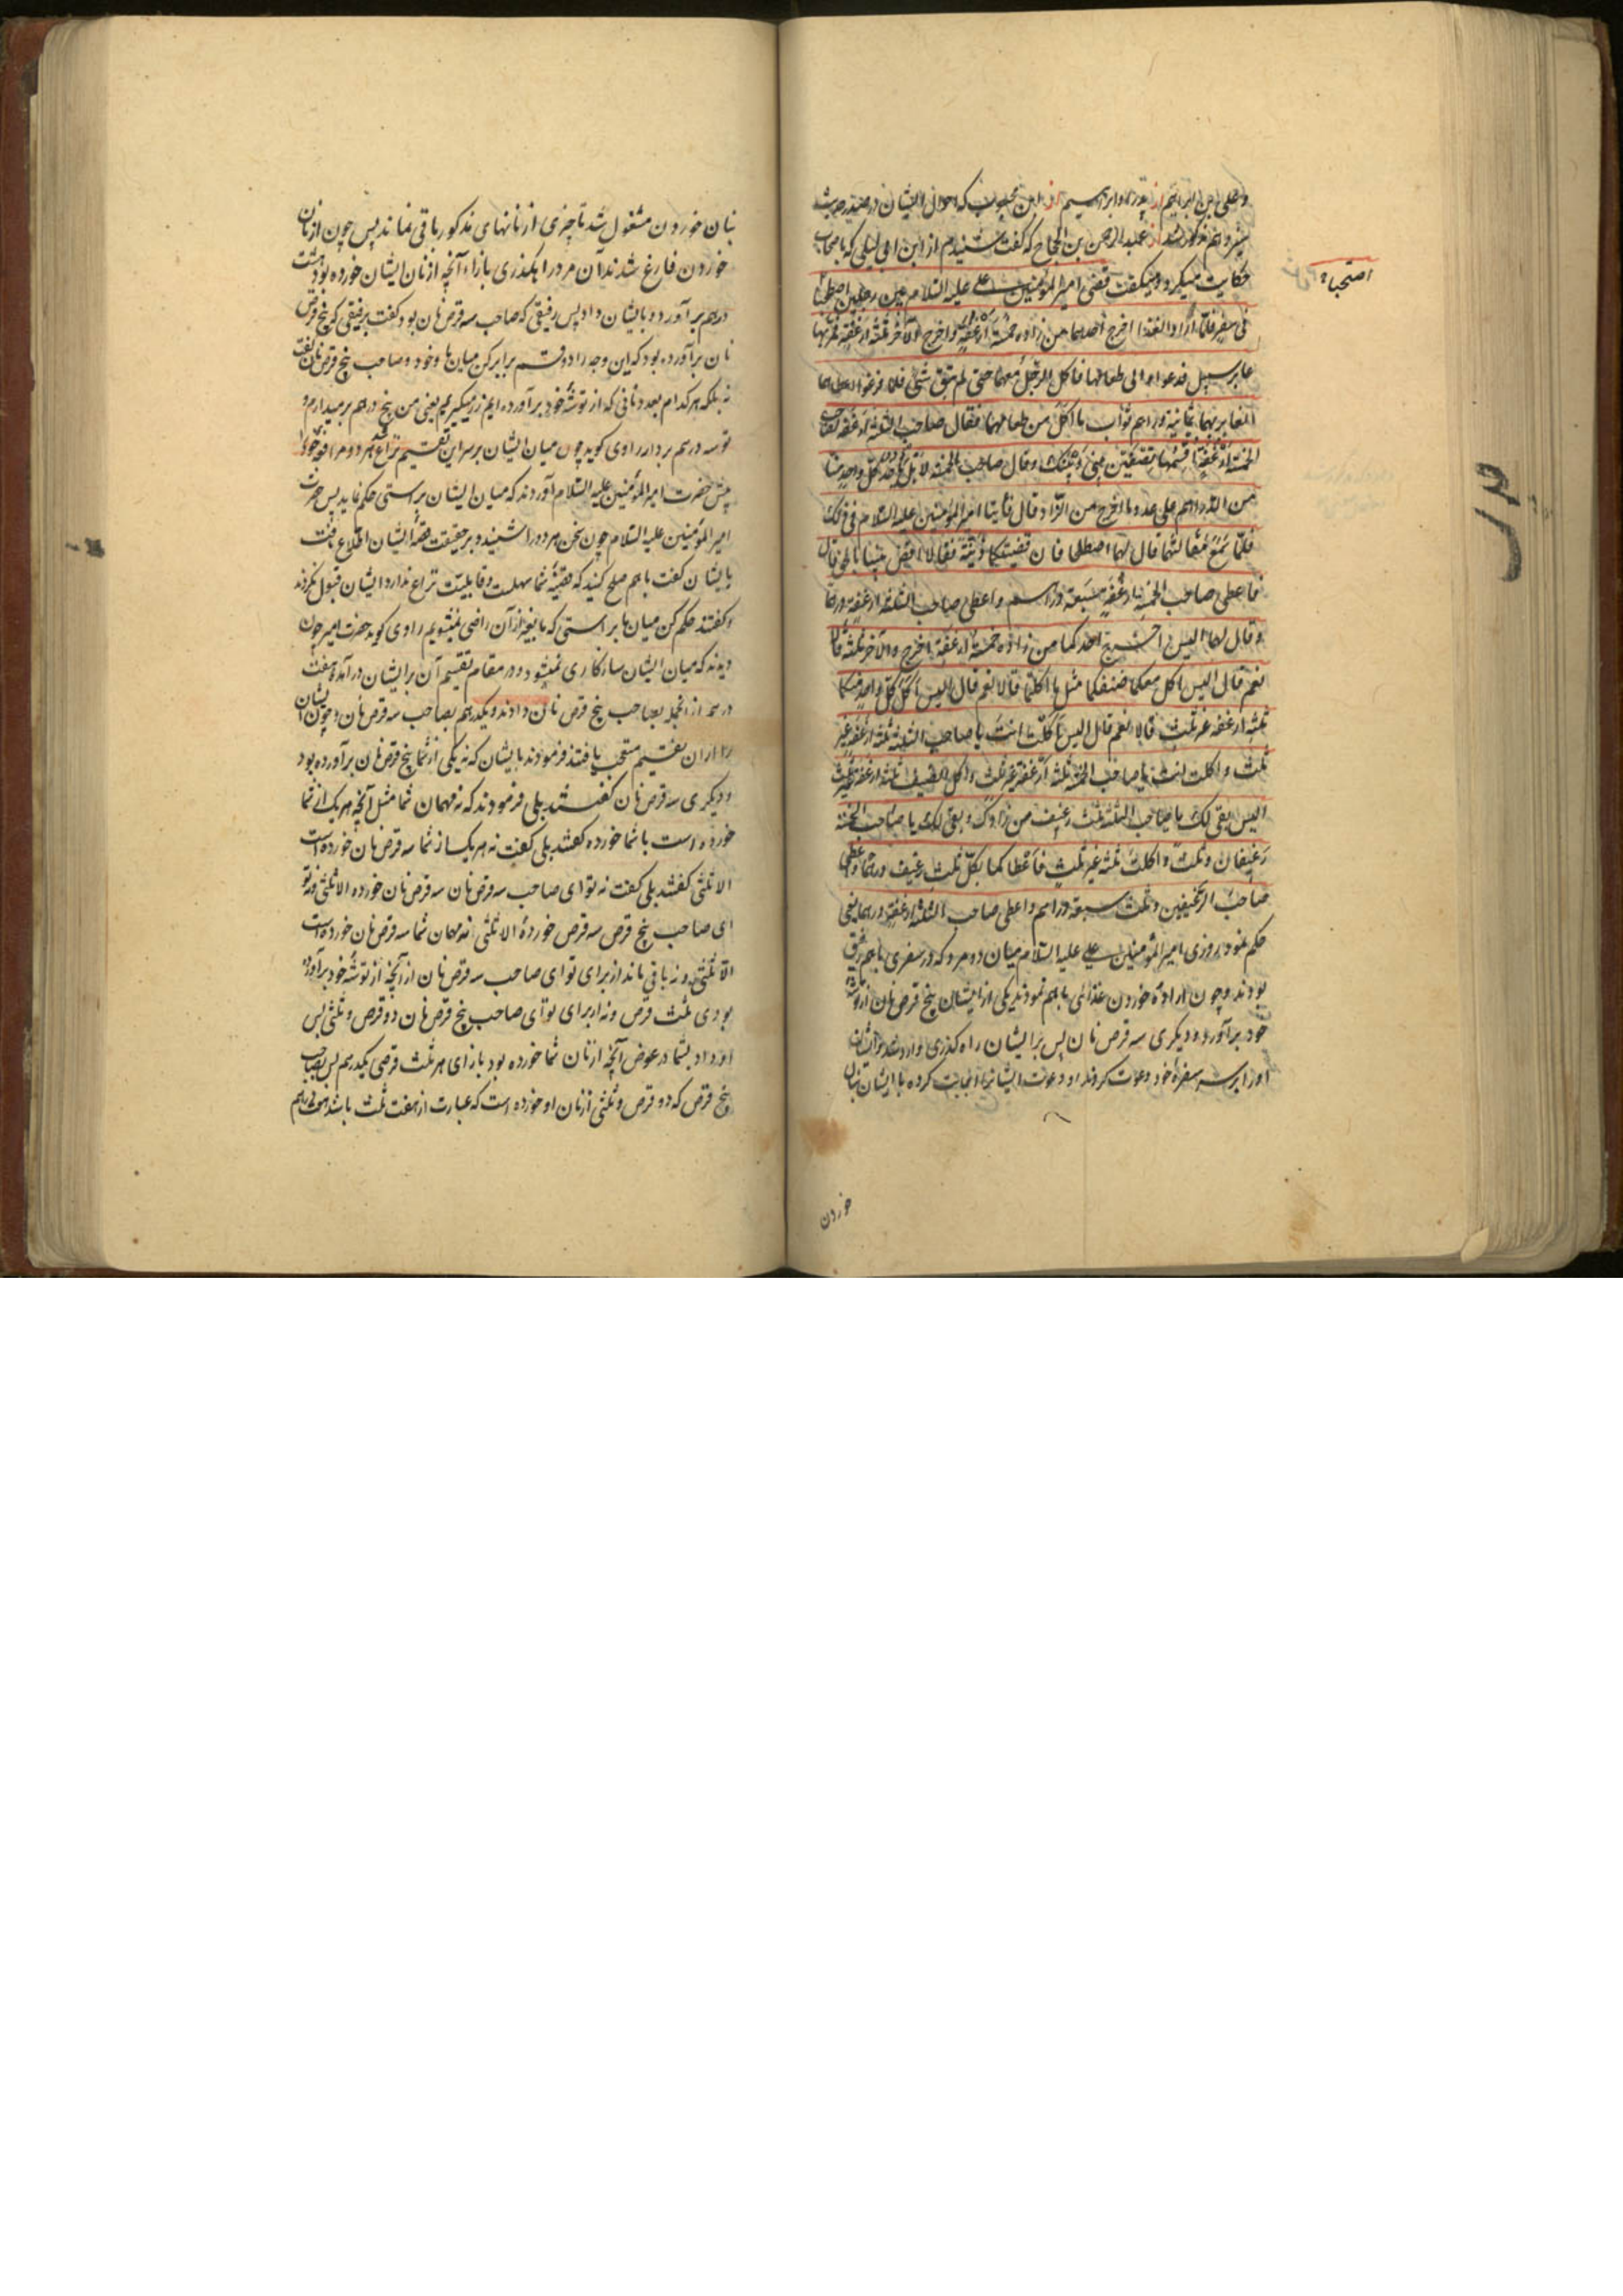 و علی بن ابراهیم از پدرش ابراهیم از ابن محبوب که احوال ایشان در صدر حدیث
پیشتر هم مذکور شد از عبد الرحمن بن الحجاج که گفت شنیدم از ابن ابی لیلی که باصحاب
حکایت میکرد و میگفت قضی امیر المؤمنین علی علیه السلام بین رجلین اصطحبا
اصتحبا
فی سفر فلما ارادا الغذا اخرج احدهما من زاده خمسة ارغفة و اخرج الآخر ثلثة ارغفة فمر بهما
عابر سبیل فدعواه الی طعامهما فاکل الرجل معهما حتی لم یبق شئ فلما فرغوا اعطاهما
المعابر بهما ثمانیة دراهم ثواب ما اکل من طعامهما فقال صاحب الثلثة ارغفة لصاحب
الخمسة ارغفة اقسمها نصفین بینی و بینک و قال صاحب الخمسة لا بل یاخذ کل واحد منا
من الدراهم علی عدد ما اخرج من الزاد قال فاتیا امیر المؤمنین علیه السلام فی ذلک
فلما سمع مقالتهما قال لهما اصطلحا فان قضیتکما دنیة فقالا اقض بیننا بالحق قال
فاعطی صاحب الخمسة ارغفة سبعة دراهم و اعطی صاحب الثلثة ارغفة درهما
و قال لهما الیس اخرج احدکما من زاده خمسة ارغفة و اخرج الآخر ثلثة قالا
نعم قال الیس اکل معکما ضیفکما مثل ما اکلتما قالا نعم قال الیس اکل کل واحد منکما
ثلثة ارغفة غیر ثلث قالا نعم قال الیس اکلت انت یا صاحب الثلثة ثلثة ارغفة غیر
ثلث و اکلت انت یا صاحب الخمسة ثلثة ارغفة غیر ثلث و اکل الضیف ثلثة ارغفة غیر ثلث
الیس بقی لک یا صاحب الثلثة ثلث رغیف من زادک و بقی لک یا صاحب الخمسة
رغیفان و ثلث و اکلت ثلثة غیر ثلث فاعطاکما بکل ثلث رغیف درهما و اعطی
صاحب الرغیفین و ثلث سبعة دراهم و اعطی صاحب الثلثة ارغفة درهما یعنی
حکم نمود روزی امیر المؤمنین علی علیه السلام میان دو مرد که در سفری باهم رفیق
بودند و چون اراده خوردن غذائی باهم نمودند یکی از ایشان پنج قرص نان از توشه
خود برآورد و دیگری سه قرص نان پس بر ایشان راه گذری وارد شد و ایشان
او را بر سر سفره خود دعوت کردند او دعوت ایشانرا اجابت کرده با ایشان بنان
خوردن
بنان خوردن مشغول شد تا چیزی از نانهای مذکور باقی نماند پس چون از نان
خوردن فارغ شدند آن مرد راهگذری بازاء آنچه از نان ایشان خورده بود هشت
درهم برآورده بایشان داد پس رفیقی که صاحب سه قرص نان بود گفت برفیقی که پنج قرص
نان برآورده بود که این وجه را دو قسم برابر کن میان ما و خود و صاحب پنج قرص نان گفت
نه بلکه هر کدام بعدد نانی که از توشه خود برآورده ایم زر میگیریم یعنی من پنج درهم بر میدارم و
تو سه درهم بردار راوی گوید چون میان ایشان بر سر این تقسیم نزاع شد هر دو مرافعه خود را
پیش حضرت امیر المؤمنین علیه السلام آوردند که میان ایشان براستی حکم نماید پس حضرت
امیر المؤمنین علیه السلام چون سخن هر دو را شنید و بر حقیقت قضیه ایشان اطلاع یافت
بایشان گفت باهم صلح کنید که قضیه شما سهلست و قابلیت نزاع ندارد ایشان قبول نکردند
و گفتند حکم کن میان ما براستی که ما بغیر از آن راضی نمیشویم راوی گوید حضرت امیر چون
دیدند که میان ایشان سازگاری نمیشود در مقام تقسیم آن بر ایشان در آمد و هفت
درهم از انجمله بصاحب پنج قرص نان دادند و یکدرهم بصاحب سه قرص نان و چون ایشان
را از ان تقسیم متعجب یافتند فرمودند بایشان که نه یکی از شما پنج قرص نان برآورده بود
و دیگری سه قرص نان گفتند بلی فرمودند که نه مهمان شما مثل آنچه هر یک از شما
خورده است با شما خورده گفتند بلی گفت نه هر یک از شما سه قرص نان خورده است
الا ثلثی گفتند بلی گفت نه تو ای صاحب سه قرص نان سه قرص نان خورده الا ثلثی و نه تو
ای صاحب پنج قرص سه قرص خورده الا ثلثی و نه مهمان شما سه قرص نان خورده است
الا ثلثی و نه باقی ماند از برای تو ای صاحب سه قرص نان از آنچه از توشه خود برآورده
بودی ثلث قرص و نه از برای تو ای صاحب پنج قرص نان دو قرص و ثلثی پس
او داد بشما در عوض آنچه از نان شما خورده بود بازای هر ثلث قرصی یکدرهم پس بصاحب
پنج قرص که دو قرص و ثلثی از نان او خورده است که عبارت از هفت ثلث باشد هفت درهم